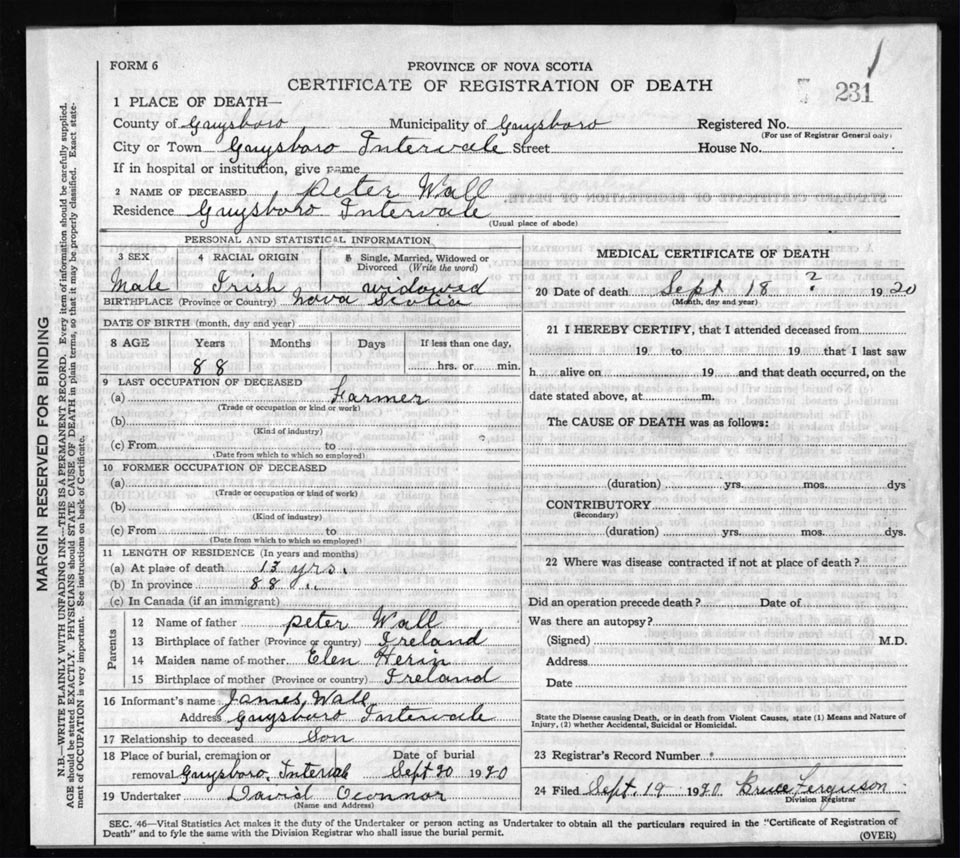 FORM 6
PROVINCE OF NOVA SCOTIA
CERTIFICATE OF REGISTRATION OF DEATH
231
1 PLACE OF DEATH—
County of Guysboro Municipality of Guysboro Registered No.
(For use of Registrar General only)
City or Town Guysboro Intervale Street House No.
If in hospital or institution, give name
2 NAME OF DECEASED Peter Wall
Residence Guysboro Intervale
(Usual place of abode)
PERSONAL AND STATISTICAL INFORMATION
3 SEX 4 RACIAL ORIGIN 5 Single, Married, Widowed or Divorced (Write the word)
Male Irish widowed
BIRTHPLACE (Province or Country) Nova Scotia
DATE OF BIRTH (month, day and year)
8 AGE Years Months Days If less than one day,
88 hrs. or min.
9 LAST OCCUPATION OF DECEASED
(a) Farmer
(Trade or occupation or kind or work)
(b)
(Kind of industry)
(c) From to
(Date from which to which so employed)
10 FORMER OCCUPATION OF DECEASED
(a)
(Trade or occupation or kind of work)
(b)
(Kind of industry)
(c) From to
(Date from which to which so employed)
11 LENGTH OF RESIDENCE (In years and months)
(a) At place of death 13 yrs.
(b) In province 88 "
(c) In Canada (if an immigrant)
Parents
12 Name of father Peter Wall
13 Birthplace of father (Province or country) Ireland
14 Maiden name of mother Elen Herin
15 Birthplace of mother (Province or country) Ireland
16 Informant's name James Wall
Address Guysboro Intervale
17 Relationship to deceased Son
18 Place of burial, cremation or Date of burial
removal Guysboro Interval Sept 20 1920
19 Undertaker David Oconnor
(Name and Address)
MEDICAL CERTIFICATE OF DEATH
20 Date of death Sept 18 ? 1920
(Month, day and year)
21 I HEREBY CERTIFY, that I attended deceased from
19 to 19 that I last saw
h alive on 19 and that death occurred, on the
date stated above, at m.
The CAUSE OF DEATH was as follows:
(duration) yrs. mos. dys
CONTRIBUTORY
(Secondary)
(duration) yrs. mos. dys.
22 Where was disease contracted if not at place of death?
Did an operation precede death? Date of
Was there an autopsy?
(Signed) M.D.
Address
Date
State the Disease causing Death, or in death from Violent Causes, state (1) Means and Nature of
Injury, (2) whether Accidental, Suicidal or Homicidal.
23 Registrar's Record Number
24 Filed Sept. 19 1920 Bruce Ferguson
Division Registrar
SEC. 46—Vital Statistics Act makes it the duty of the Undertaker or person acting as Undertaker to obtain all the particulars required in the "Certificate of Registration of
Death" and to fyle the same with the Division Registrar who shall issue the burial permit.
(OVER)
MARGIN RESERVED FOR BINDING
N.B.—WRITE PLAINLY WITH UNFADING INK—THIS IS A PERMANENT RECORD. Every item of information should be carefully supplied.
AGE should be stated EXACTLY. PHYSICIANS should STATE CAUSE OF DEATH in plain terms, so that it may be properly classified. Exact state-
ment of OCCUPATION is very important. See instructions on back of Certificate.